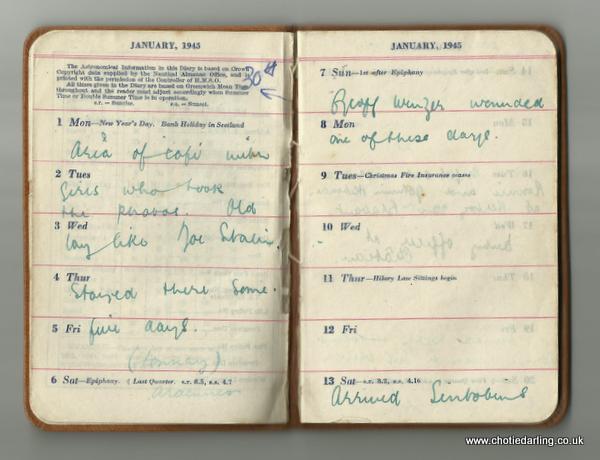 JANUARY, 1945
The Astronomical Information in this Diary is based on Crown
Copyright data supplied by the Nautical Almanac Office, and is
printed with the permission of the Controller of H.M.S.O.
All times given in the Diary are based on Greenwich Mean Time
throughout and the reader must adjust accordingly when Summer
Time or Double Summer Time is in operation.
s.r. = Sunrise. s.s. = Sunset.
30th
1 Mon—New Year's Day. Bank Holiday in Scotland
Area of café with
2 Tues
girls who took
the photos. Old
3 Wed
lay like Joe Stalin.
4 Thur
Stayed there some
5 Fri five days.
6 Sat—Epiphany. ( Last Quarter. s.r. 8.5, s.s. 4.7
JANUARY, 1945
7 Sun—1st after Epiphany
Geoff wounded
8 Mon
one of these days.
9 Tues—Christmas Fire Insurance ceases
10 Wed
11 Thur—Hilary Law Sittings begin
12 Fri
13 Sat—s.r. 8.2, s.s. 4.16
Arrived
www.chotiedarling.co.uk